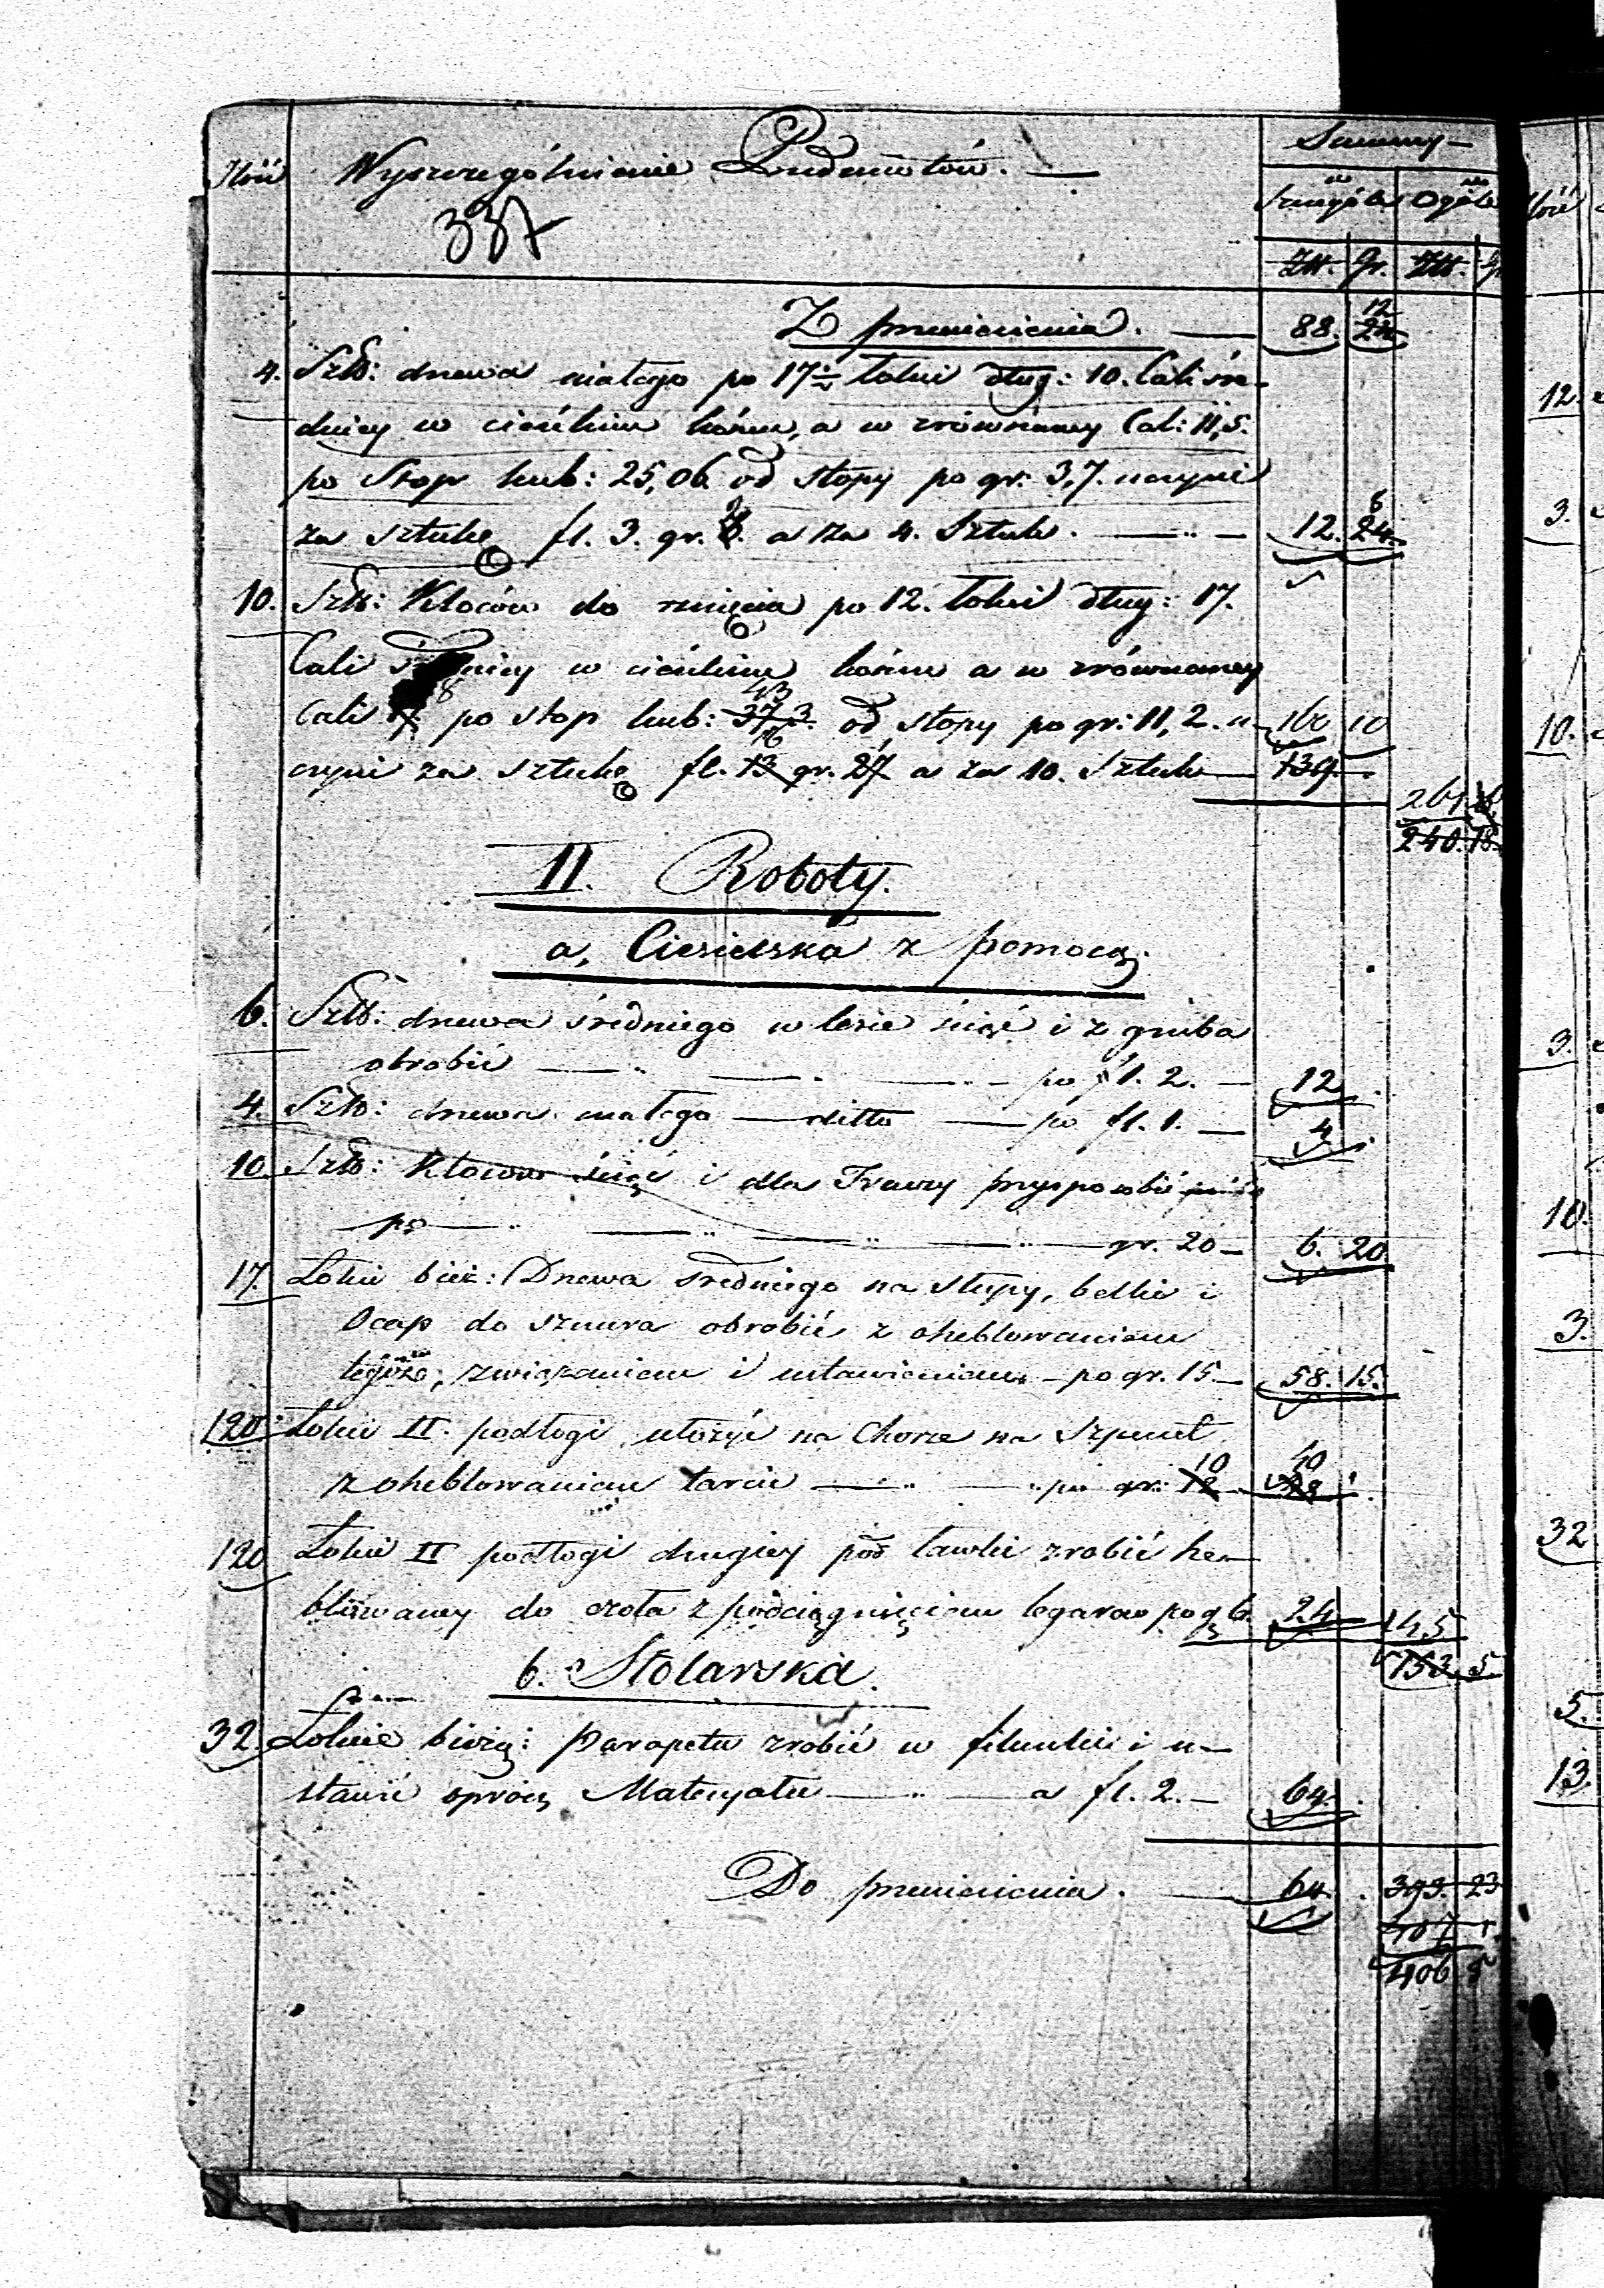 Ilość Wyszczególnienie Przedmiotów. Summy
Szczególe Ogóle
337
Złt. gr. Złt. gr
Z przeniesienia. 88. 12 24
4. Szt: drzewa małego po 17 1/2 łokci dług: 10. Cali śre-
dnicy w cieńkim końcu, a w zrównaney Cal: 11,5.
po Stop kub: 25,06 od stopy po gr: 3,7. uczyni
za sztukę fl. 3. gr. 6. a za 4. Sztuk. 12. 24. 8
10. Szt: Kloców do rznięcia po 12. łokci dług: 17.
Cali średnicy w cieńkim końcu a w zrównaney
Cali 8 po stop kub: 37,3. 43 od stopy po gr: 11,2. u- 160 10
czyni za sztukę fl. 13 16 gr. 27 a za 10. Sztuk 139.
261
240. 18.
II. Roboty.
a, Ciesielska z pomocą.
6. Szt: drzewa średniego w lesie ściąć i z gruba
obrobić po fl. 2. 12
4. Szt: drzewa małego ditto po fl. 1. 4
10. Szt: Kloców ściąć i dla Traczy przysposobić
po gr. 20 6. 20.
17. Łokci bież: Drzewa średniego na słupy, belki i
Ocap do sznura obrobić z oheblowaniem
tegoż, związaniem i ustawieniem po gr. 15. 58. 15.
120. Łokci II. podłogi ułożyć na Chorze na Szpunt
z oheblowaniem tarcic po gr: 12 10 40
120 Łokci II podłogi drugiey pod ławki zrobić he-
blowaney do czoła z podciągnięciem legarów po g 6. 24 145
153. 5
b. Stolarska.
32. Łokcie bieżą: Parapetu zrobić w filunki i u-
stawić oprócz Materyału a fl. 2. 64.
Do przeniesienia. 64. 393. 23
407 1
406 5
12.
3.
10.
3.
10.
3.
32
5.
13.